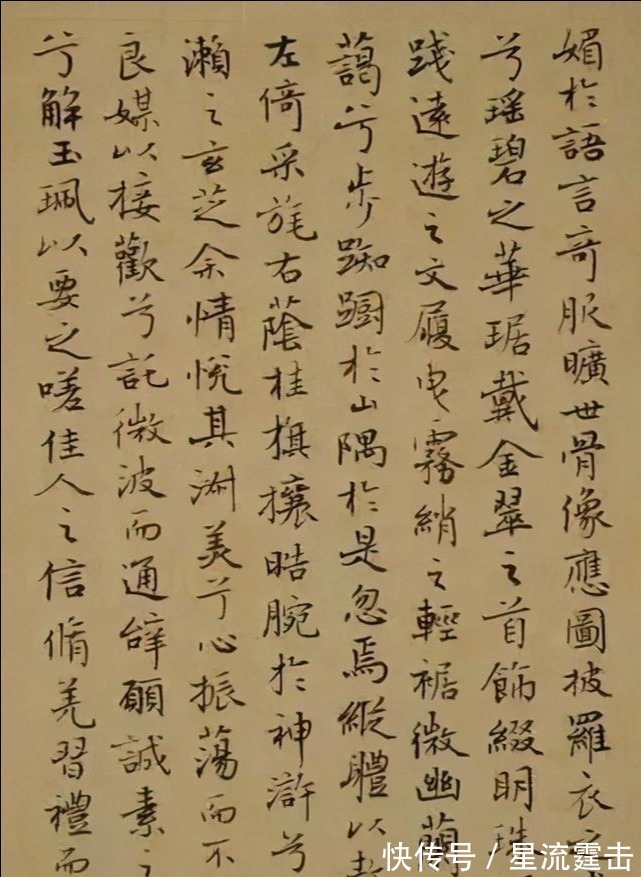 媚於語言奇服曠世骨像應圖披羅衣
兮瑤碧之華琚戴金翠之首飾綴明珠
踐遠遊之文履曳霧綃之輕裾微幽蘭
藹兮步踟躕於山隅於是忽焉縱體以
左倚采旄右蔭桂旗攘晧腕於神滸兮
瀨之玄芝余情悅其淑美兮心振蕩而不
良媒以接歡兮託微波而通辭願誠素之
兮解玉珮以要之嗟佳人之信脩羌習禮而
快传号/星流霆击